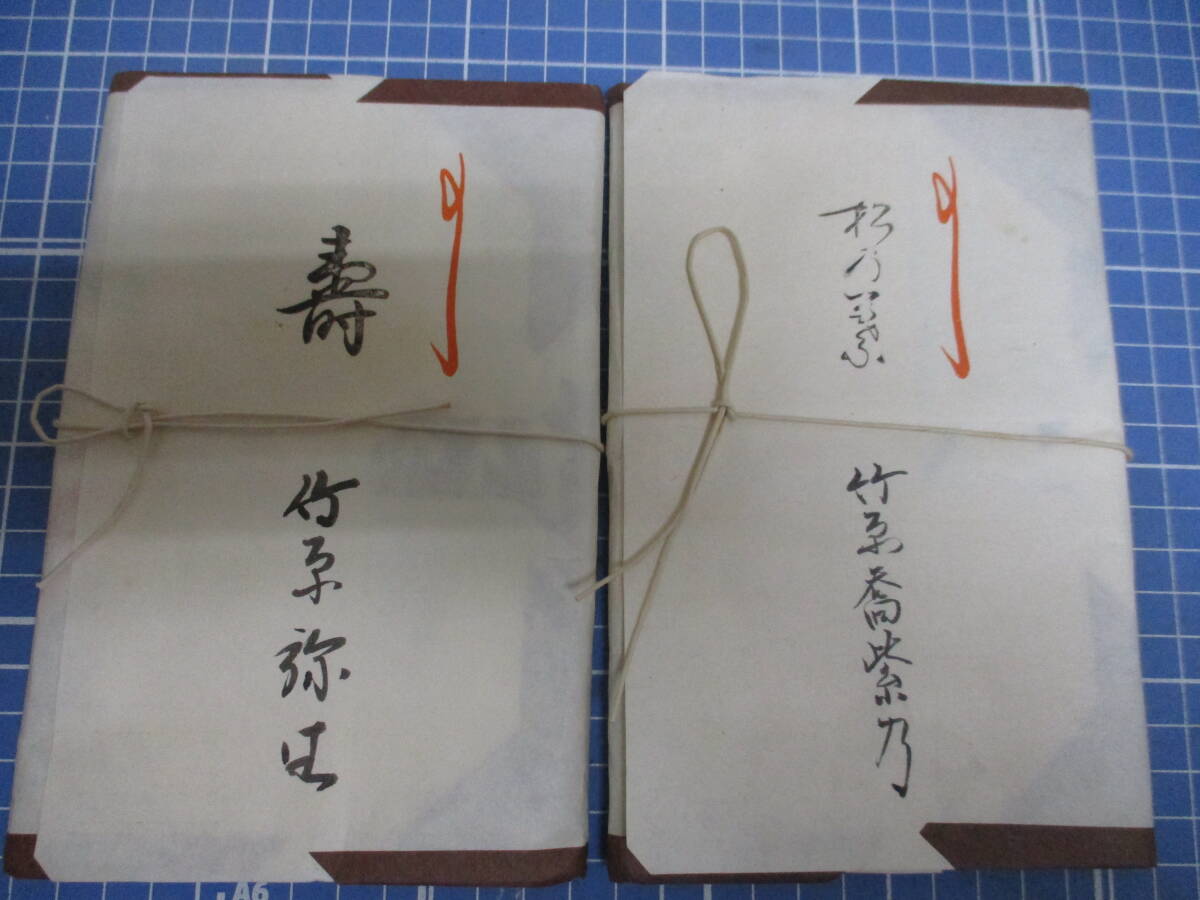 壽
竹原弥生
松乃葉
竹原喬紫乃
A6